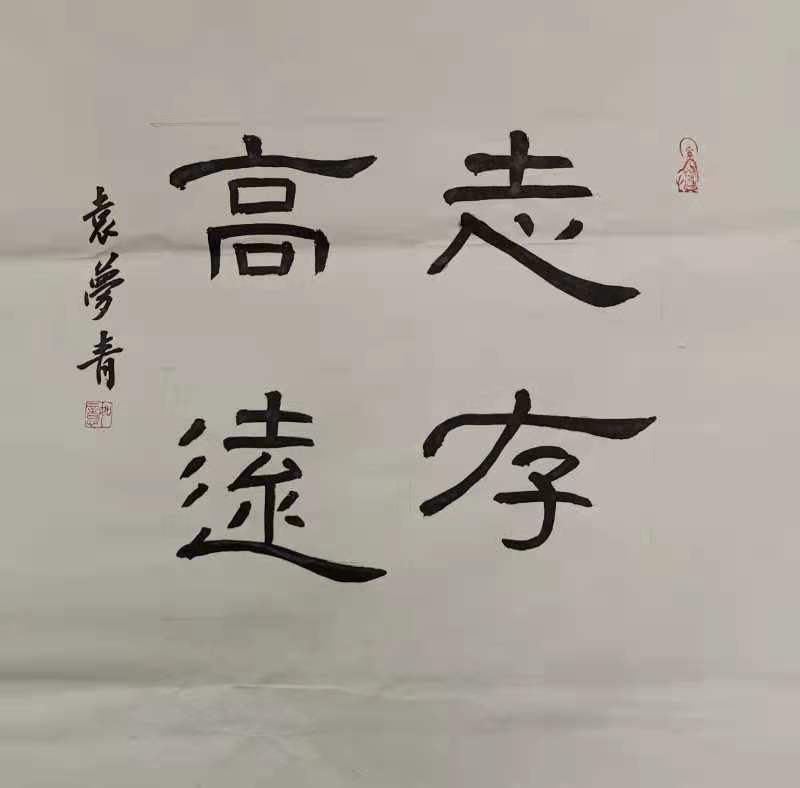 志存
高遠
袁夢青